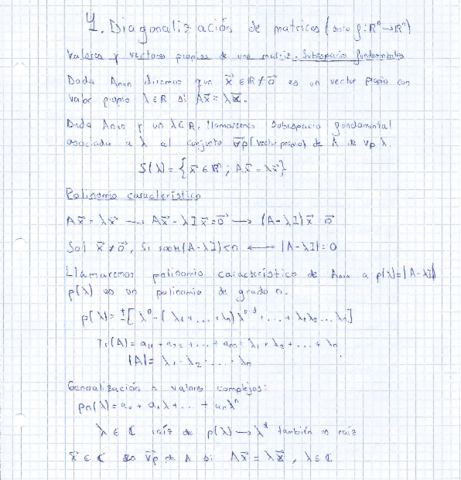 4. Diagonalización de matrices (solo f: ℝⁿ→ℝⁿ)
Valores y vectores propios de una matriz. Subespacio fundamental
Dada Anxn diremos que x⃗ ∈ ℝⁿ ≠ 0⃗ es un vector propio con
valor propio λ∈ℝ si Ax⃗ = λx⃗.
Dada Anxn y un λ∈ℝ, llamaremos Subespacio fundamental
asociado a λ al conjunto v⃗p (vector propio) de A de vp λ
S(λ) = {x⃗ ∈ ℝⁿ; Ax⃗ = λx⃗}
Polinomio característico
Ax⃗ = λx⃗ → Ax⃗ - λIx⃗ = 0⃗ → (A-λI)x⃗ = 0⃗
Sol x⃗ ≠ 0⃗, Si rang(A-λI)<n ⟷ |A-λI|=0
Llamaremos polinomio característico de Anxn a p(λ)=|A-λI|
p(λ) es un polinomio de grado n.
p(λ) = ±[λⁿ - (λ₁+...+λₙ)λⁿ⁻¹ + ... + λ₁λ₂...λₙ]
Tr(A) = a₁₁ + a₂₂ + ... + aₙₙ = λ₁ + λ₂ + ... + λₙ
|A| = λ₁ · λ₂ · ... · λₙ
Generalización a valores complejos:
pn(λ) = a₀ + a₁λ + ... + aₙλⁿ
λ ∈ ℂ raíz de p(λ) → λ* también es raíz
x⃗ ∈ ℂ es v⃗p de A si Ax⃗ = λx⃗, λ∈ℂ